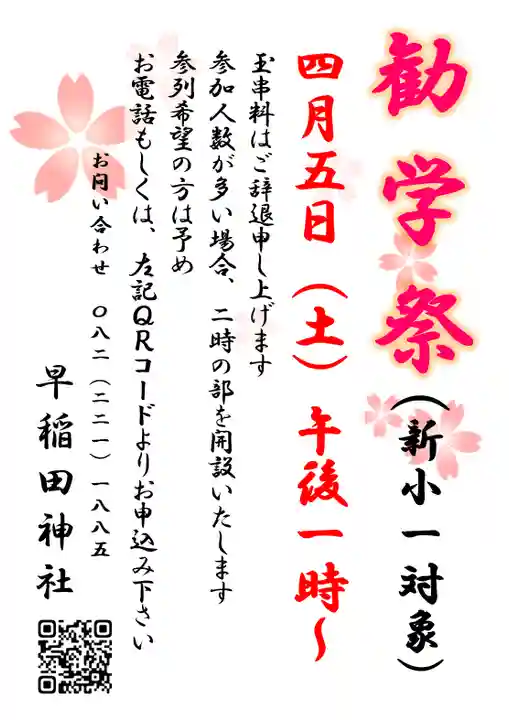 勧学祭（新小一対象）
四月五日（土）午後一時～
玉串料はご辞退申し上げます
参加人数が多い場合、二時の部を開設いたします
参列希望の方は予め
お電話もしくは、左記QRコードよりお申込み下さい
お問い合わせ　〇八二（二二一）一八八五
早稲田神社